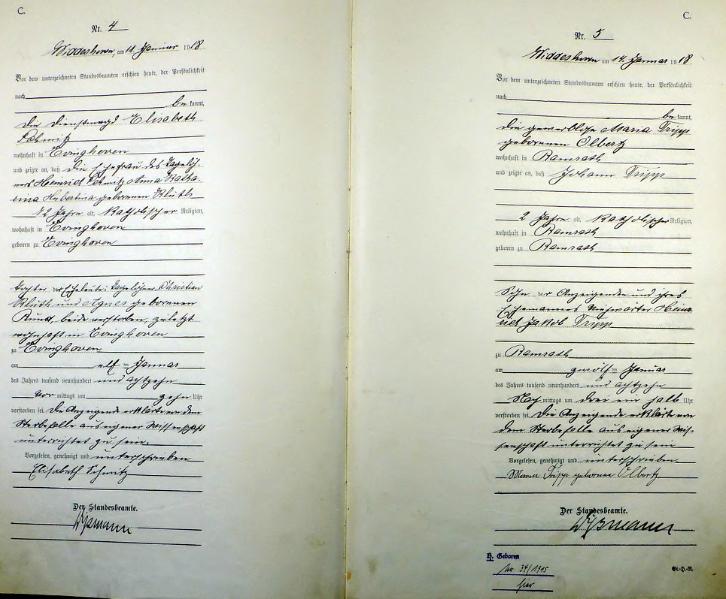 C.
Nr. 4
Widdeshoven, am 11. Januar 1918
Vor dem unterzeichneten Standesbeamten erschien heute, der Persönlichkeit
nach
be kannt,
die Dienstmagd Elisabeth
Schmitz
wohnhaft in Evinghoven
und zeigte an, daß die Ehefrau des Tagelöh-
ners Heinrich Schmitz Anna Katha-
rina Hubertina geborenen Klüth
Jahre alt, Katholischer Religion,
wohnhaft in Evinghoven
geboren zu Evinghoven
Tochter der Eheleute Tagelöhner Christian
Klüth und Agnes geborenen
beide verstorben, zuletzt
wohnhaft in Evinghoven
zu Evinghoven
am elf = Januar
des Jahres tausend neunhundert und achtzehn
Vor mittags um zehn Uhr
verstorben sei. Die Anzeigende erklärte von dem
Sterbefalle aus eigener Wissenschaft
unterrichtet zu sein.
Vorgelesen, genehmigt und unterschrieben
Elisabeth Schmitz
Der Standesbeamte.
C.
Nr. 5
Widdeshoven am 14. Januar 1918
Vor dem unterzeichneten Standesbeamten erschien heute, der Persönlichkeit
nach
be kannt,
die gewerblose Maria Tripp
geborenen Olbertz
wohnhaft in Ramrath
und zeigte an, daß Johann Tripp
2 Jahre alt, Katholischer Religion,
wohnhaft in Ramrath
geboren zu Ramrath
Sohn der Anzeigende und ihres
Ehemannes Hein-
rich Jakob Tripp
zu Ramrath
am zwölf = Januar
des Jahres tausend neunhundert und achtzehn
Nach mittags um drei ein halb Uhr
verstorben sei. Die Anzeigende erklärte von
dem Sterbefalle aus eigener Wis-
senschaft unterrichtet zu sein
Vorgelesen, genehmigt und unterschrieben.
Maria Tripp geborene Olbertz
Der Standesbeamte.
H. Geboren
Nr 34/1915
hier